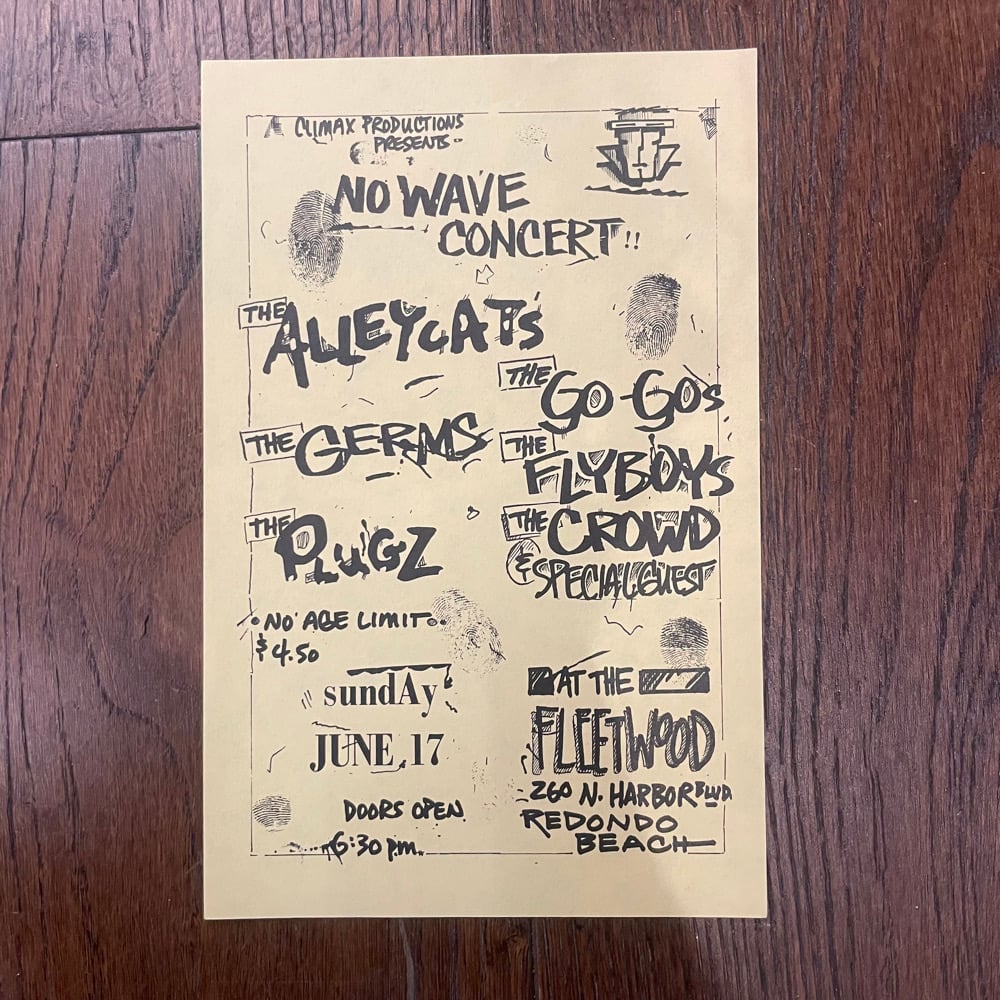 A CLIMAX PRODUCTIONS
PRESENTS
NO WAVE
CONCERT!!
THE ALLEYCATS
THE GO-GOs
THE GERMS
THE FLYBOYS
THE PLUGZ
THE CROWD
& SPECIAL GUEST
• NO AGE LIMIT •
$4.50
sundAy
JUNE 17
DOORS OPEN
6:30 p.m.
AT THE
FLEETWOOD
260 N. HARBOR BLVD
REDONDO
BEACH